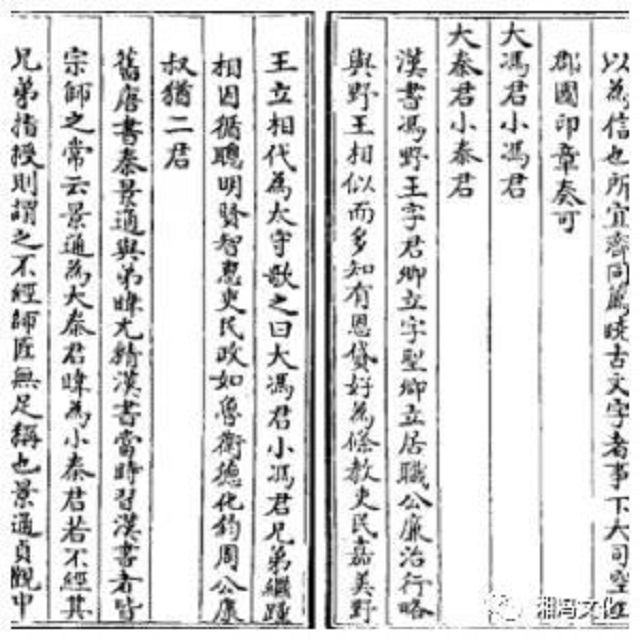 以為信也所宜齊同薦曉古文字者事下大司空正
郡國印章奏可
大馮君小馮君
大秦君小秦君
漢書馮野王字君卿立字聖卿立居職公廉治行略
與野王相似而多知有恩貸好為條教吏民嘉美野
王立相代為太守歌之曰大馮君小馮君兄弟繼踵
相因循聰明賢智惠吏民政如魯衛德化鈞周公康
叔猶二君
舊唐書秦景通與弟暐尤精漢書當時習漢書者皆
宗師之常云景通為大秦君暐為小秦君若不經其
兄弟指授則謂之不經師匠無足稱也景通貞觀中
湘冯文化